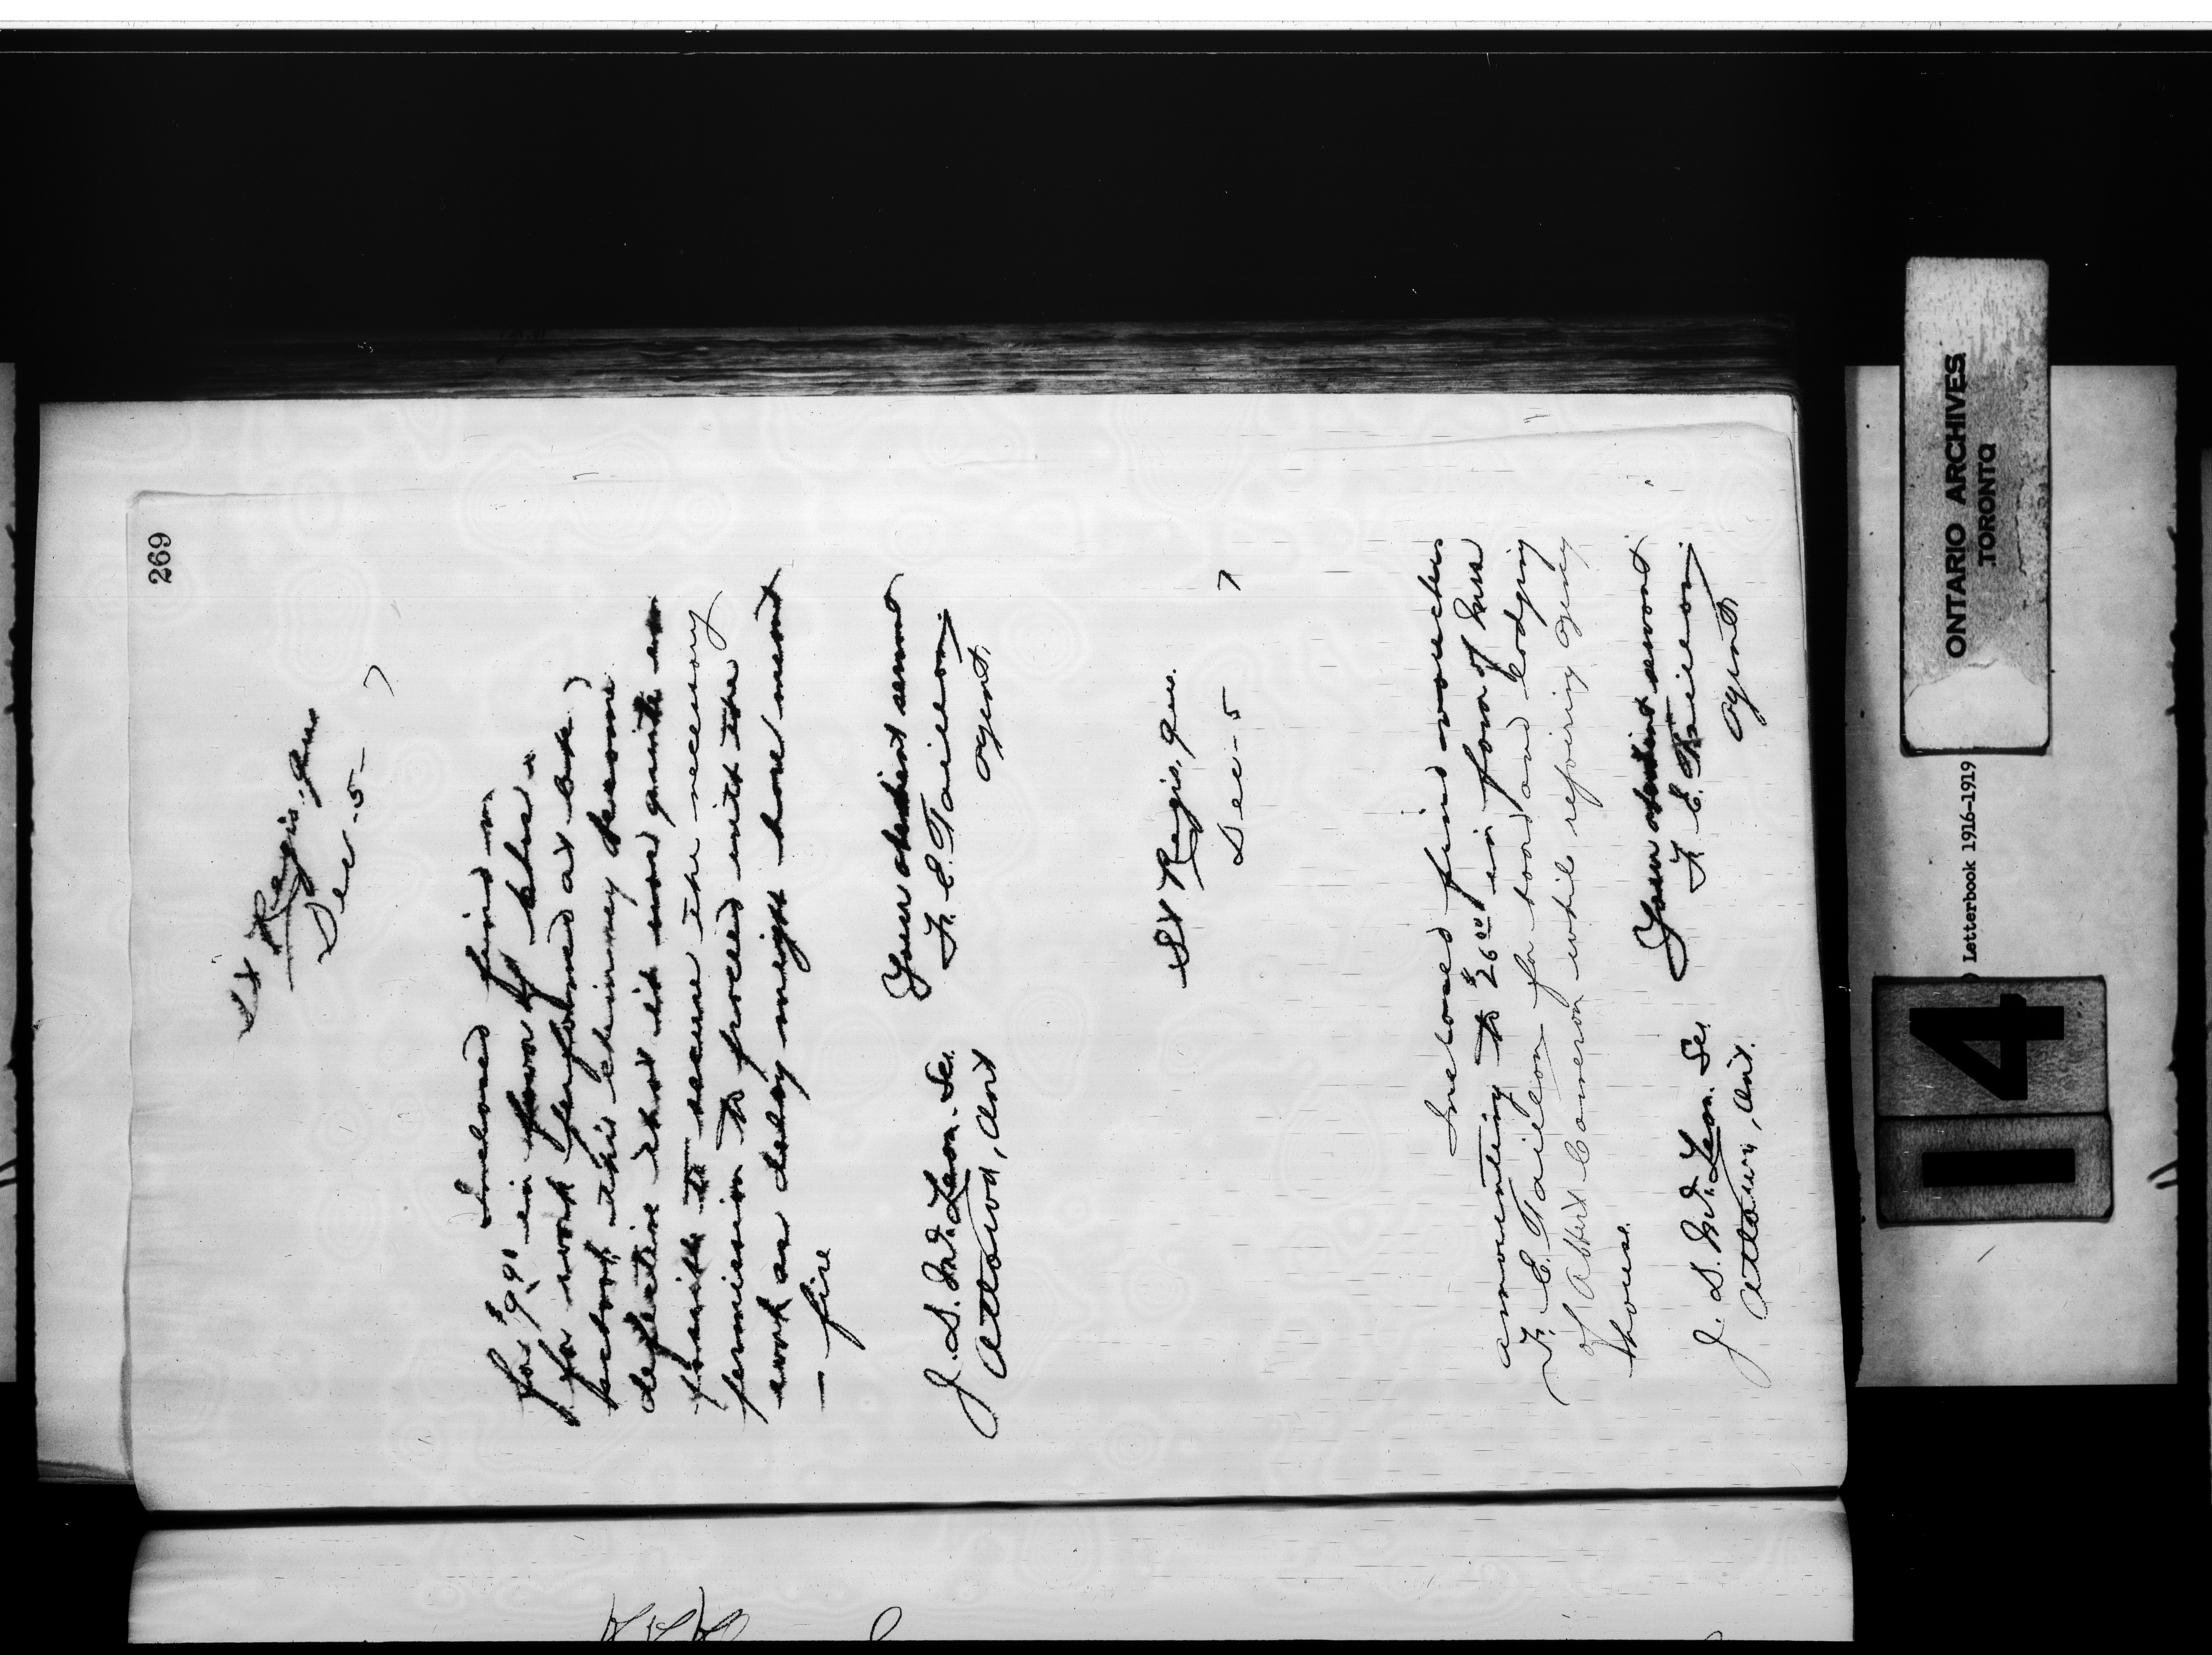 269
St Regis, Que
Dec - 5 - 7
Inclosed find vo
for $9.90 in favor of
for work performed at
school this chimney became
defective that it was quite im
possible to secure the necessary
permission to proceed with the
work as delay might have meant
— fire
Your obedient servant
F. E. Taillon
Agent
J. D. McLean. Sec.
Ottawa, Ont
St Regis, Que.
Dec - 5 7
Inclosed find voucher
amounting to $26.00 in favor of Mrs
F. E. Taillon for board and lodging
of Albert Cameron while repairing agency
house.
Your obedient servant
F. E. Taillon
Agent
J. D. McLean. Sec.
Ottawa, Ont.
ONTARIO ARCHIVES
TORONTO
) Letterbook 1916-1919
14